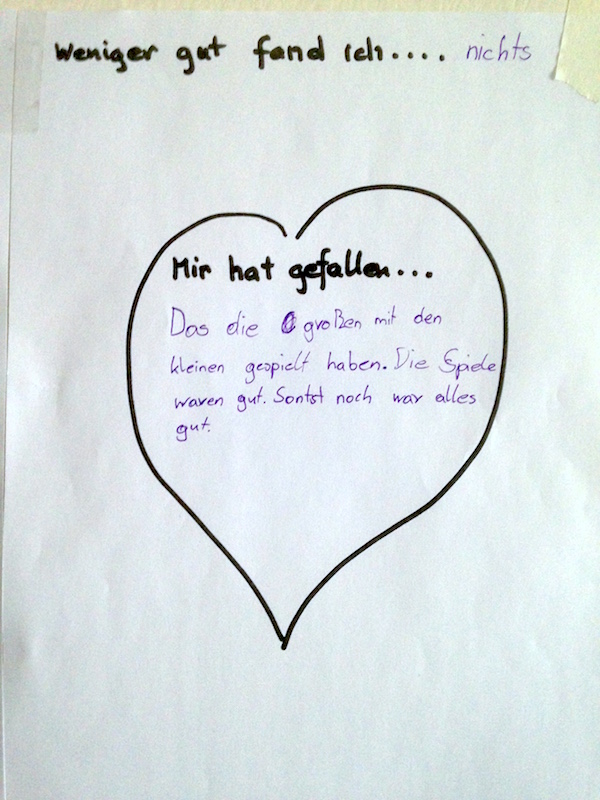 Weniger gut fand ich.... nichts
Mir hat gefallen...
Das die großen mit den
kleinen gespielt haben. Die Spiele
waren gut. Sontst noch war alles
gut.